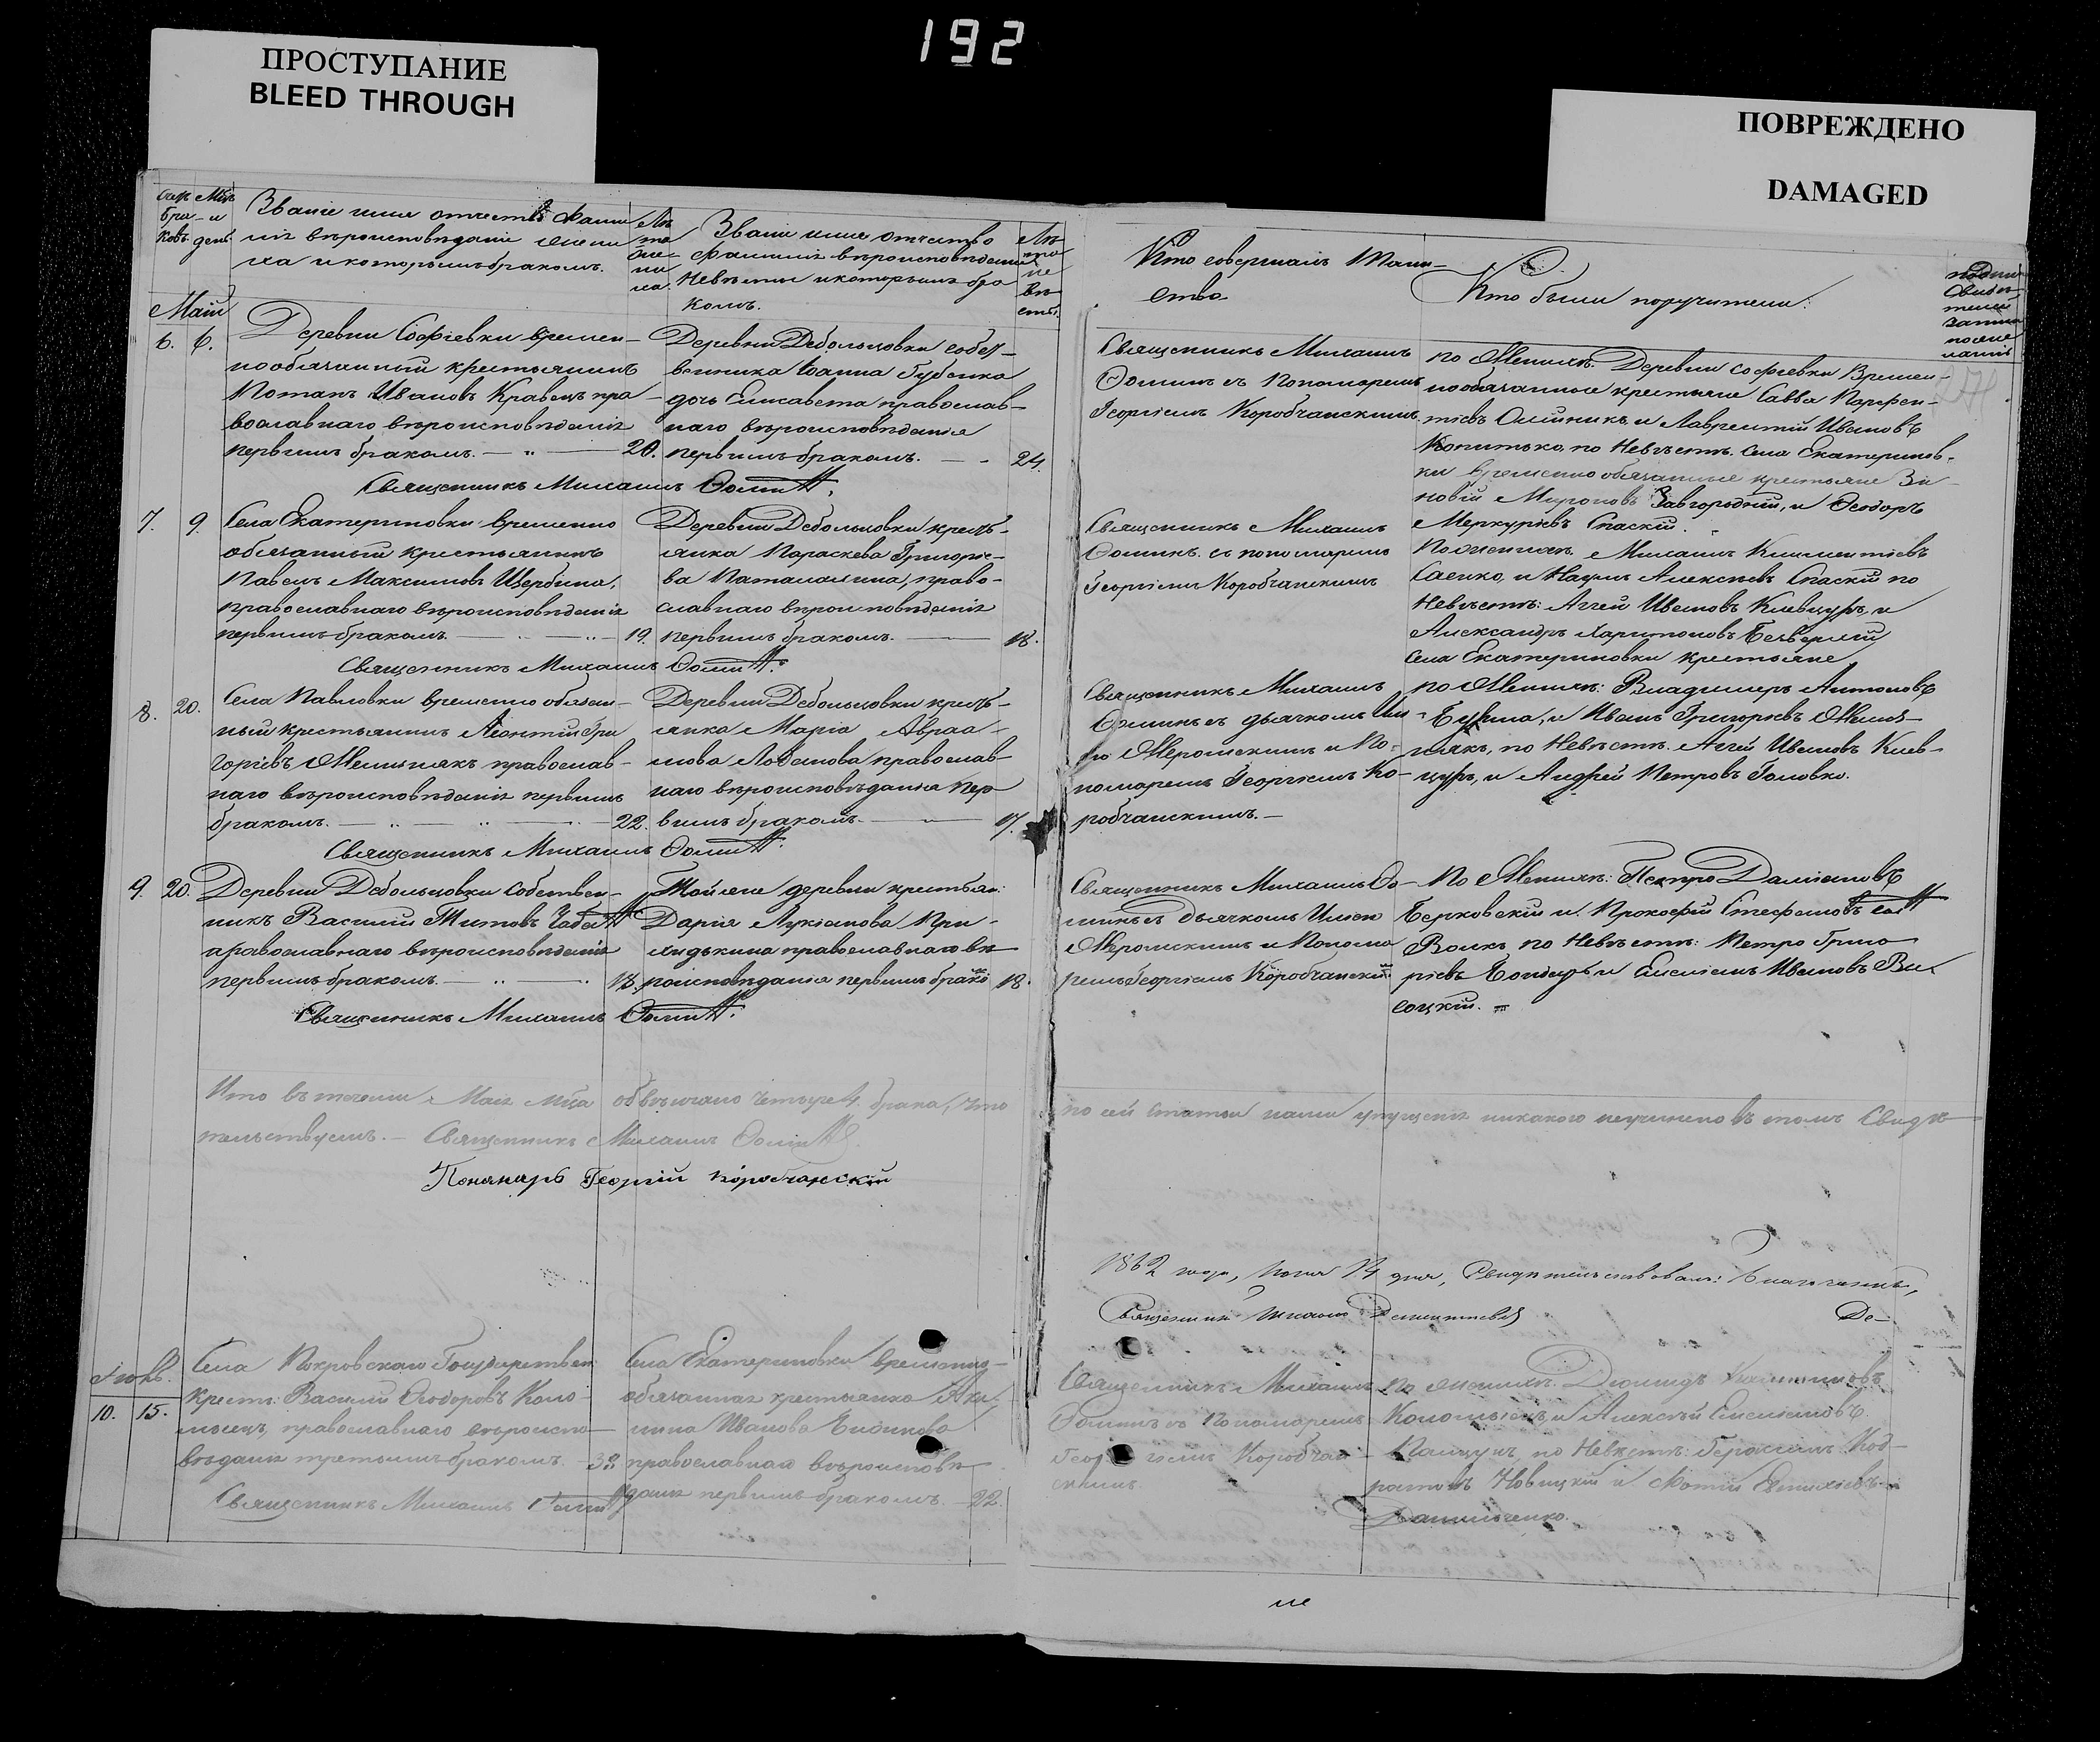 192
ПРОСТУПАНИЕ
BLEED THROUGH
ПОВРЕЖДЕНО
DAMAGED
Счетъ
бра-
ковъ.
Мѣц.
и
день
Званіе имя отчество фами-
лія вѣроисповѣданіе жени-
ха и которымъ бракомъ.
Лѣ
та
же-
ни
ха.
Званіе имя отчество
фамилія вѣроисповѣданіе
Невѣсты и которымъ бра
комъ.
Лѣ
та
не
вѣ
сты.
Маій
6. 6.
Деревни Софіевки времен-
нообязанный крестьянинъ
Потапъ Ивановъ Кравецъ пра-
вославнаго вѣроисповѣданія
первымъ бракомъ. 20.
Деревни Дебольцовки собст-
венника Іоанна Губенка
дочь Елисавета православ-
наго вѣроисповѣданія
первымъ бракомъ. 24.
Священникъ Михаилъ Ѳоминъ.
7. 9.
Села Екатериновки временно
обязанный крестьянинъ
Павелъ Максимовъ Щербина,
православнаго вѣроисповѣданія
первымъ бракомъ. 19.
Деревни Дебольцовки кресть-
янка Параскева Григоріе-
ва Паталахина, право-
славнаго вѣроисповѣданія
первымъ бракомъ. 18.
Священникъ Михаилъ Ѳоминъ.
8. 20.
Села Павловки временно обязан-
ный крестьянинъ Леонтій Гри
горіевъ Мельникъ православ-
наго вѣроисповѣданія первымъ
бракомъ. 22.
Деревни Дебольцовки кресть-
янка Марія Авраа-
мова Лобанова православ-
наго вѣроисповѣданія пер
вымъ бракомъ. 17.
Священникъ Михаилъ Ѳоминъ.
9. 20.
Деревни Дебольцовки собствен-
никъ Василій Титовъ
православнаго вѣроисповѣданія
первымъ бракомъ. 18.
Той же деревни крестьян:
Дарія Лукіанова При-
ходькина православнаго вѣ
роисповѣданія первымъ брако 18.
Священникъ Михаилъ Ѳоминъ.
Итого въ теченіи Маія мѣца обвѣнчано четыре 4. брака, что
тельствуемъ. Священникъ Михаилъ Ѳоминъ.
Понамарь Георгій Коробчанскій
Іюнь.
10. 15.
Села Покровскаго Государствен
Крестъ: Василій Ѳеодоровъ Коло-
міецъ, православнаго вѣроиспо-
вѣданія третьимъ бракомъ. 32
Села Екатериновки временно-
обязанная крестьянка Аки-
лина Иванова
православнаго вѣроисповѣ
данія первымъ бракомъ. 22.
Священникъ Михаилъ Ѳоминъ
Кто совершалъ Таин-
ство
Кто были поручители:
подпись
свидѣ-
телей
записи
по жела
нію
Священникъ Михаилъ
Ѳоминъ съ Пономаремъ
Георгіемъ Коробчанскимъ.
по Женихѣ: Деревни Софіевки Времен-
нообязанные крестьяне Савва Парфен-
тіевъ Олійникъ, и Лаврентій Ивановъ
Копитько, по Невѣстѣ. Села Екатеринов-
ки временно обязанные крестьяне Зи-
новій Мироновъ Завгородній, и Ѳеодоръ
Меркуріевъ Спаскій.
Священникъ Михаилъ
Ѳоминъ. съ пономаремъ
Георгіемъ Коробчанскимъ
По женихѣ. Михаилъ Климентіевъ
Саенко, и Наумъ Алексѣевъ Спаскій по
Невѣстѣ: Аггей Ивановъ Клевцуръ, и
Александръ Харитоновъ
села Екатериновки крестьяне
Священникъ Михаилъ
Ѳоминъ съ дьячкомъ
Мерошскимъ и По-
номаремъ Георгіемъ Ко-
робчанскимъ.
по Женихѣ: Владимиръ Антоновъ
и Иванъ Григорьевъ Мель-
никъ, по Невѣстѣ. Аггей Ивановъ Клев-
цуръ, и Андрей Петровъ Головко.
Священникъ Михаилъ Ѳо-
минъ съ дьячкомъ
и Понома
ремъ Георгіемъ Коробчанскимъ.
По Женихѣ: Петро Даміановъ
Берковскій и Прокофій Стефановъ
Волкъ по Невѣстѣ: Петро Григо
ріевъ Бондарь и Емеліанъ Ивановъ Ви-
соцкій.
по сей статьи нами упущенія никакого неучинено въ томъ Свидѣ
1862 года, Іюня 14 дня, Свидѣтельствовалъ: Благочинный,
Священникъ
Священникъ Михаилъ
Ѳоминъ съ Пономаремъ
Георгіемъ Коробчан-
скимъ
по женихѣ. Діомидъ
Коломіецъ, и Алексѣй Емеліановъ
по Невѣстѣ: Герасимъ Код-
ратовъ Новицкій и Фотій
Данильченко.